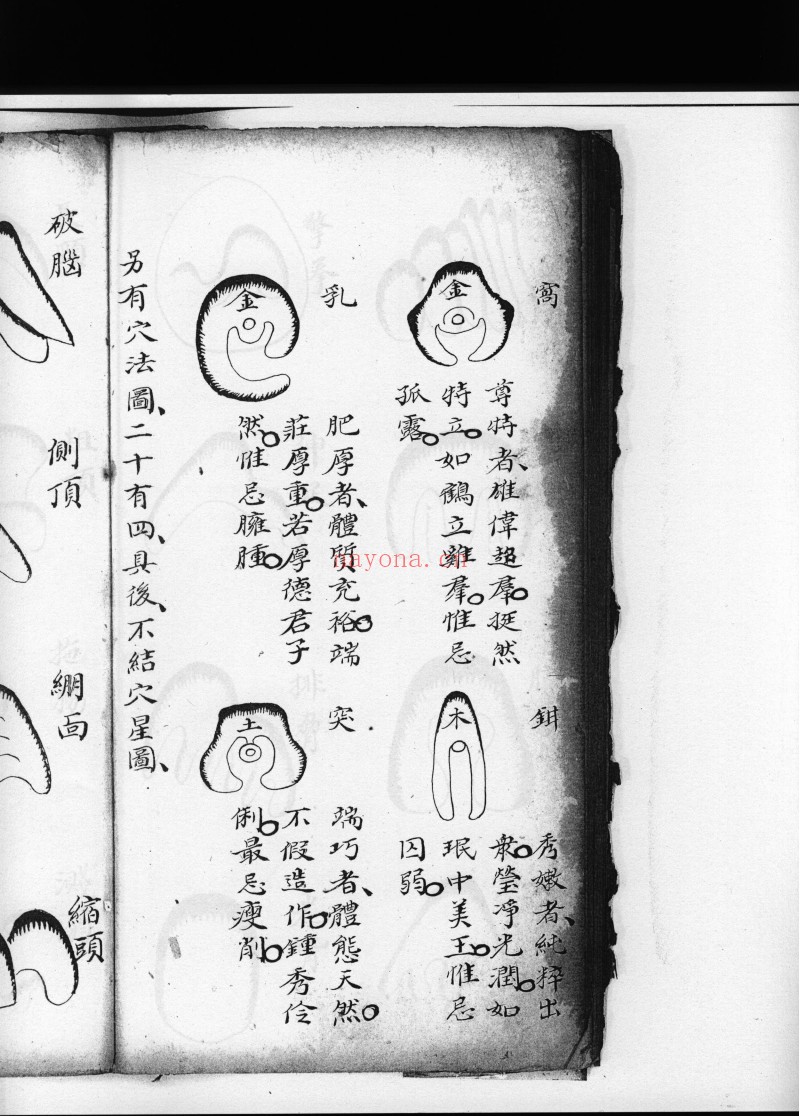 窩
金
尊特者、雄偉超羣。挺然
特立。如鶴立雞羣。惟忌
孤露。
鉗
木
秀嫩者、純粹出
衆。瑩凈光潤。如
珉中美玉。惟忌
囚弱。
乳
金
肥厚者、體质充裕。端
莊厚重。若厚德君子
然。惟忌臃腫。
突
土
端巧者、體態天然。
不假造作。鍾秀伶
俐。最忌瘦削。
另有穴法圖、二十有四、具後、不結穴星圖、
破腦
側頂
綳面
縮頭
nayona.cn